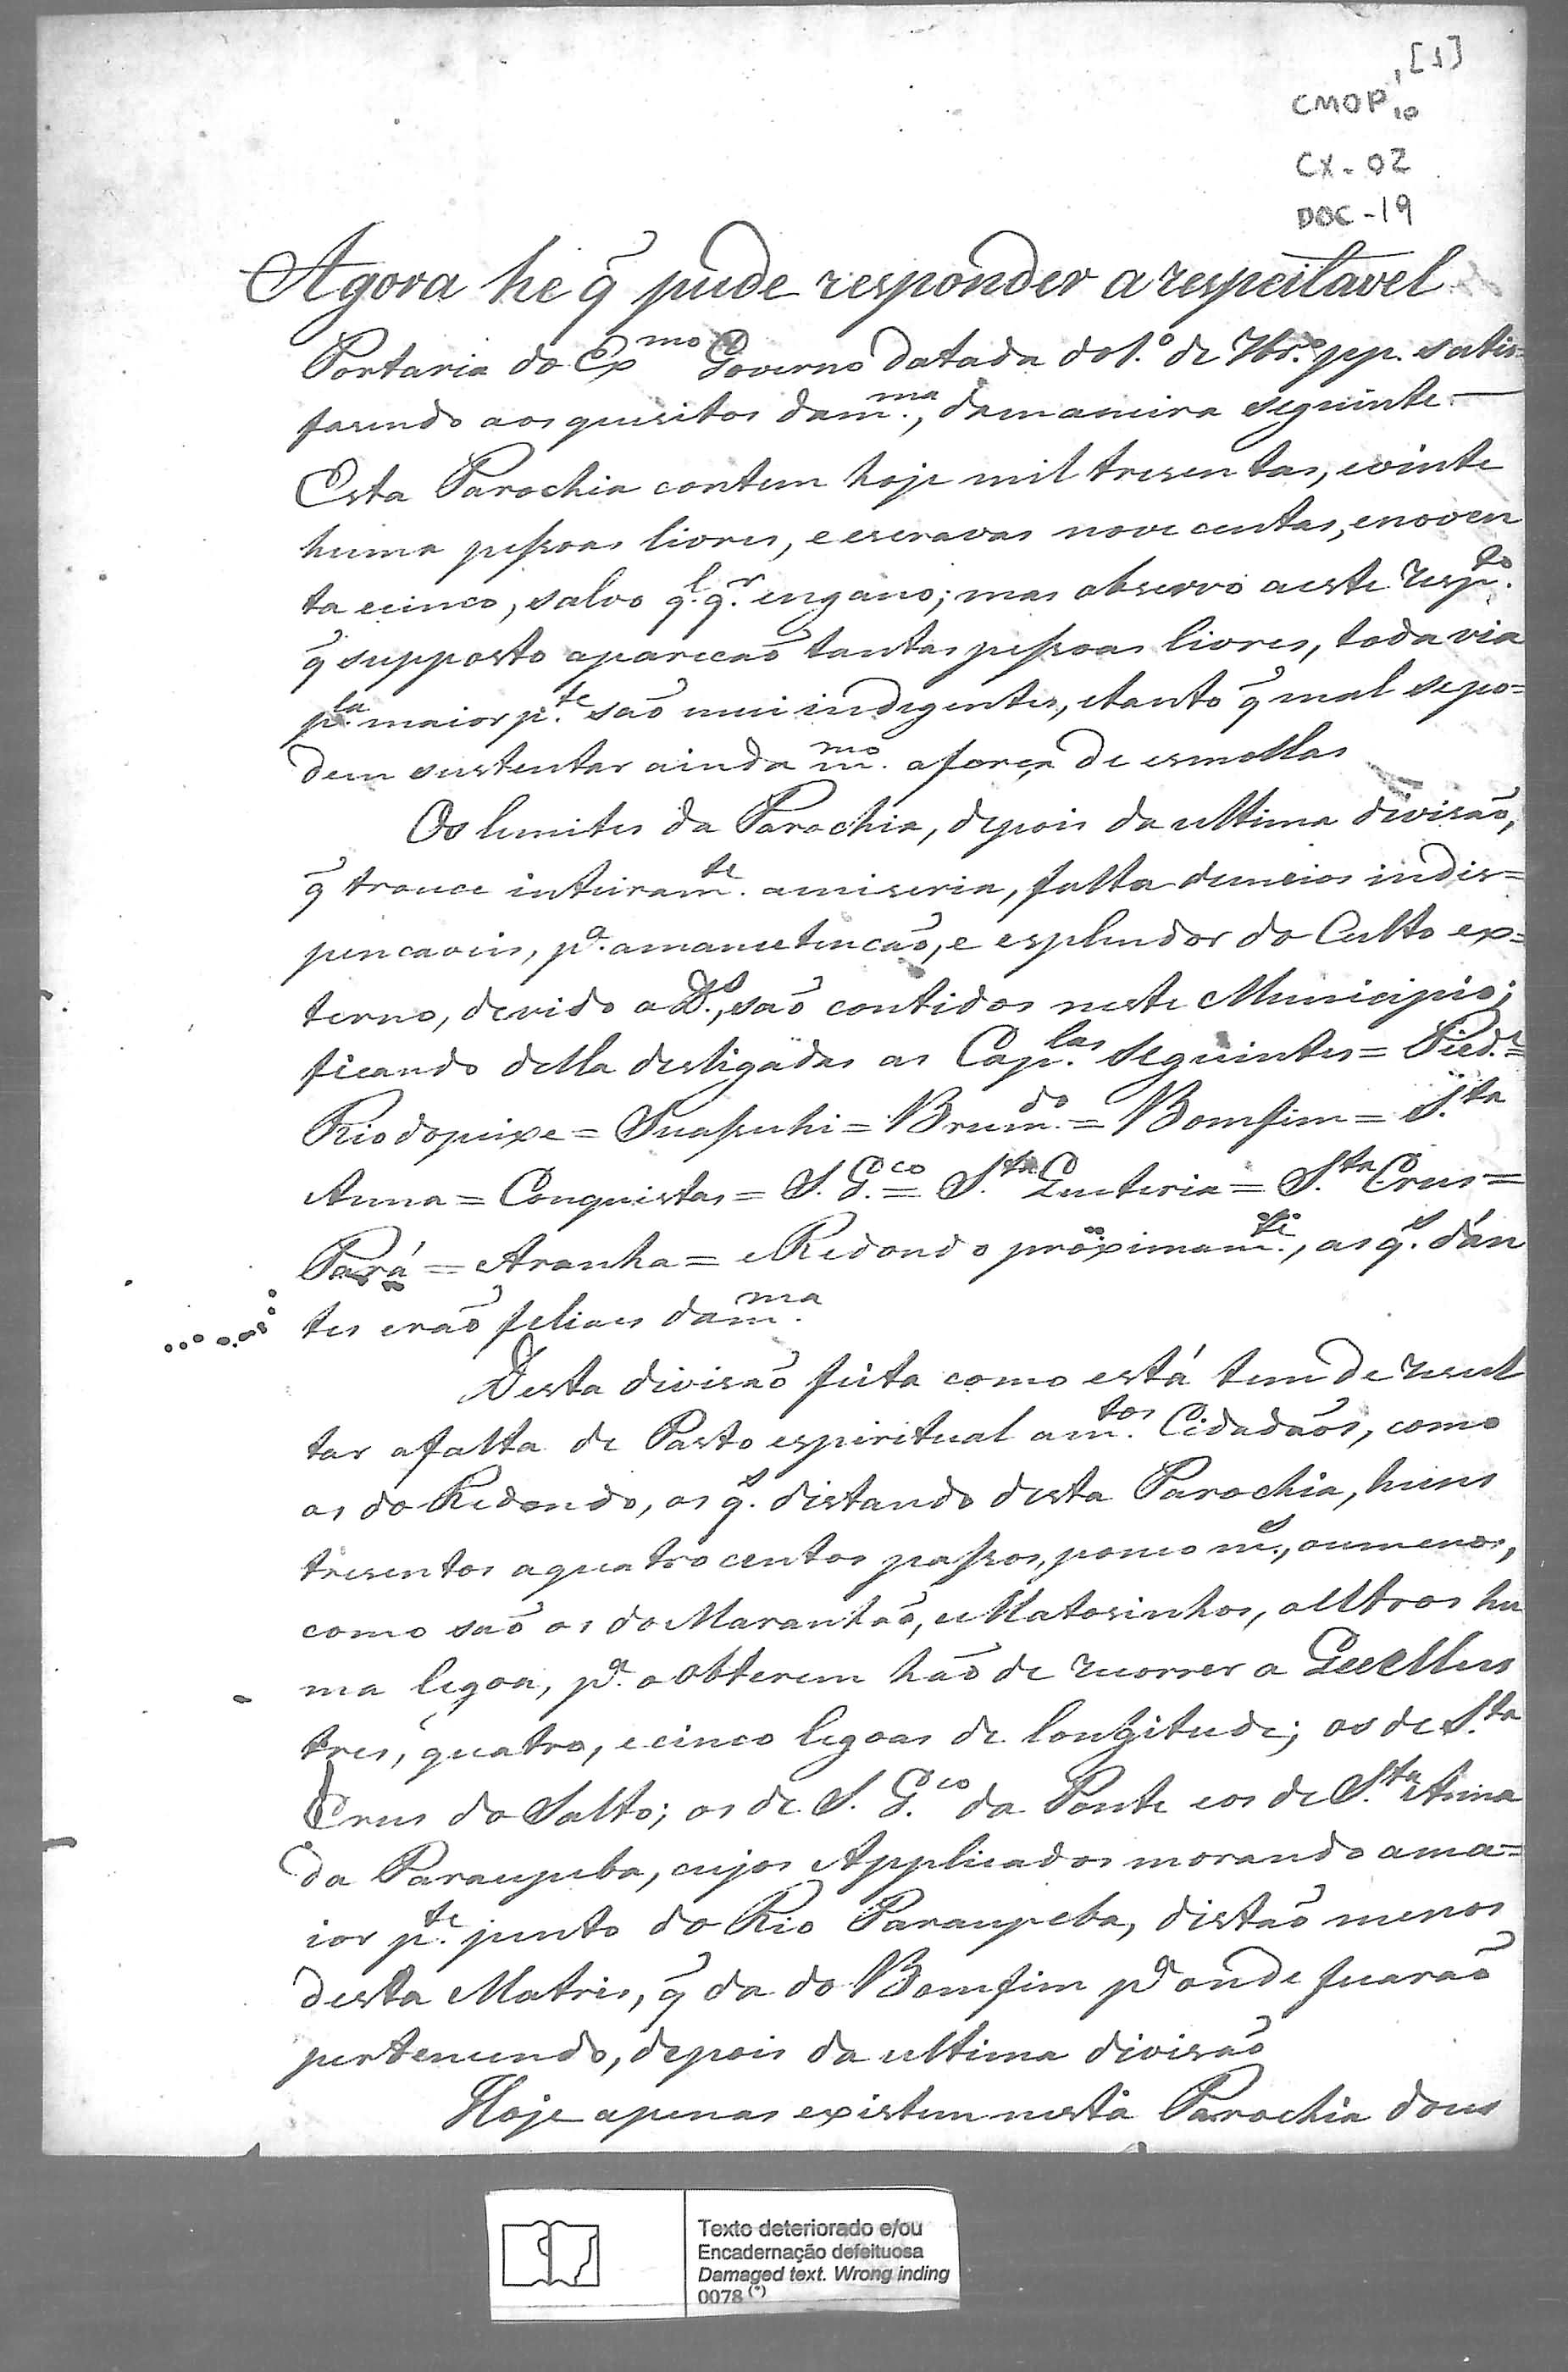 , [1]
CMOP 10
CX - 02
DOC - 19
Agora he q̃ pude responder a respeitavel
Portaria do Ex.mo Governo datada do 1.º de 7br.º pp. satis=
fasendo aos quesitos dam.ma, damaneira seguinte.—
Esta Parochia contem hoje mil tresentas, evinte
huma pessoas livres, e escravas nove centas, enoven
ta ecinco, salvo q.l q.r engano; mas observo aeste resp.to
q̃ supposto aparecaõ tantas pessoas livres, toda via
p.la maior p.te saõ mui indigentes, etanto q̃ mal sepo=
dem sustentar ainda m.mo aforça de esmollas
Os lemites da Parochia, depois da ultima divisaõ,
q̃ trouce inteiram.te amiseria, falta demeios indis=
pencaveis, p.a amanutencaõ, e esplendor do Culto ex=
terno, devido a D.s, saõ contidos neste Municipio;
ficando della desligadas as Cap.las seguintes = Pied.e =
Rio dopeixe = Suassuhi = Brum.do = Bomfim = S.ta
Anna = Conquistas = S. G.co = S.ta Quiteria = S.ta Crus =
Pará = Aranha = eRedondo próximam.te, as q.s d'an
tes eraõ feliaes dam.ma
Desta divisaõ feita como está tem de resul
tar afalta de Pasto espiritual a m.tos Cidadaõs, como
os do Redondo, os q.s distando desta Parochia, huns
tresentos aquatro centos passos, pouco m.s, oumenos,
como saõ os do Maranhaõ, eMatosinhos, eoutros hu
ma legoa, p.a oobterem haõ de recorrer a Quellus
tres, quatro, ecinco legoas de longitude; os de S.ta
Crus do Salto; os de S. G.co da Ponte eos de S.ta Anna
da Paraupeba, cujos Applicados morando ama=
ior p.te junto do Rio Paraupeba, distaõ menos
desta Matris, q̃ da do Bomfim p.a onde ficaraõ
pertencendo, depois da ultima divisaõ
Hoje apenas existem nesta Parochia dous
Texto deteriorado e/ou
Encadernação defeituosa
Damaged text. Wrong inding
0078 (*)